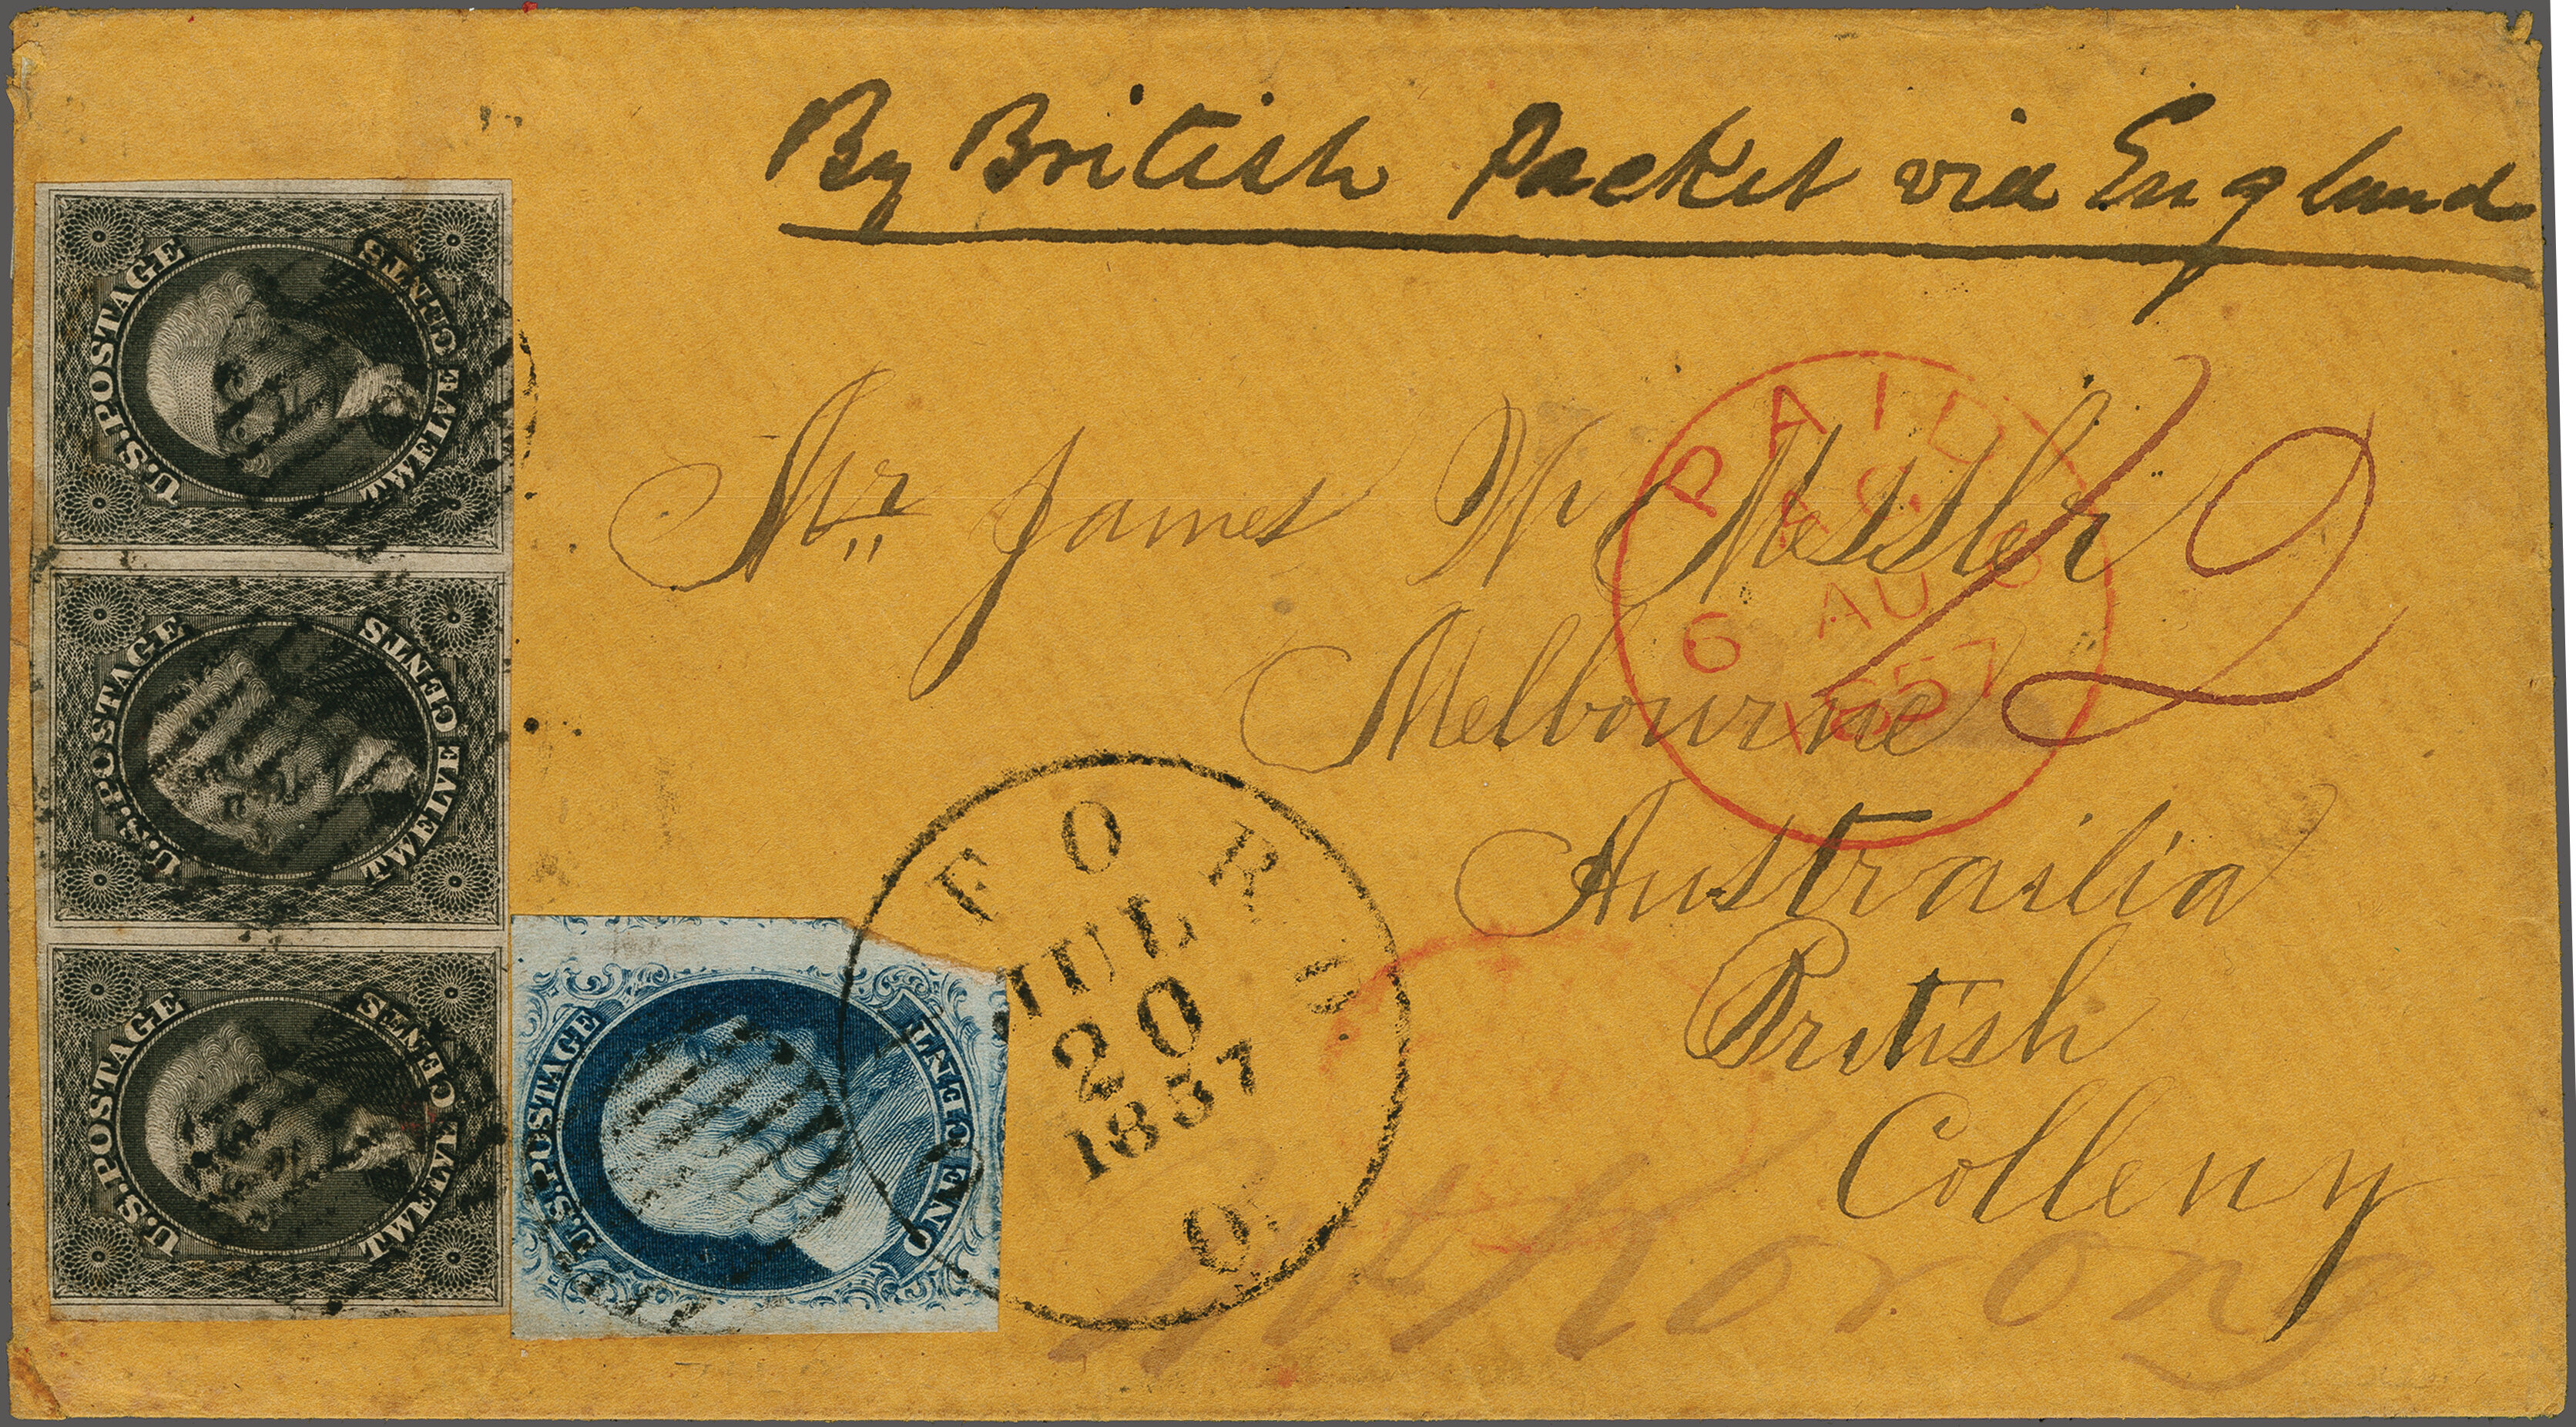 By British Packet via England
U.S. POSTAGE
TWELVE CENTS
U.S. POSTAGE
TWELVE CENTS
U.S. POSTAGE
TWELVE CENTS
U.S. POSTAGE
ONE CENT
PAID
6 AU 6
1857
Mr James W Messler
Melbourne
Austrailia
British
Colleny
FORD
JUL
20
1857
O.